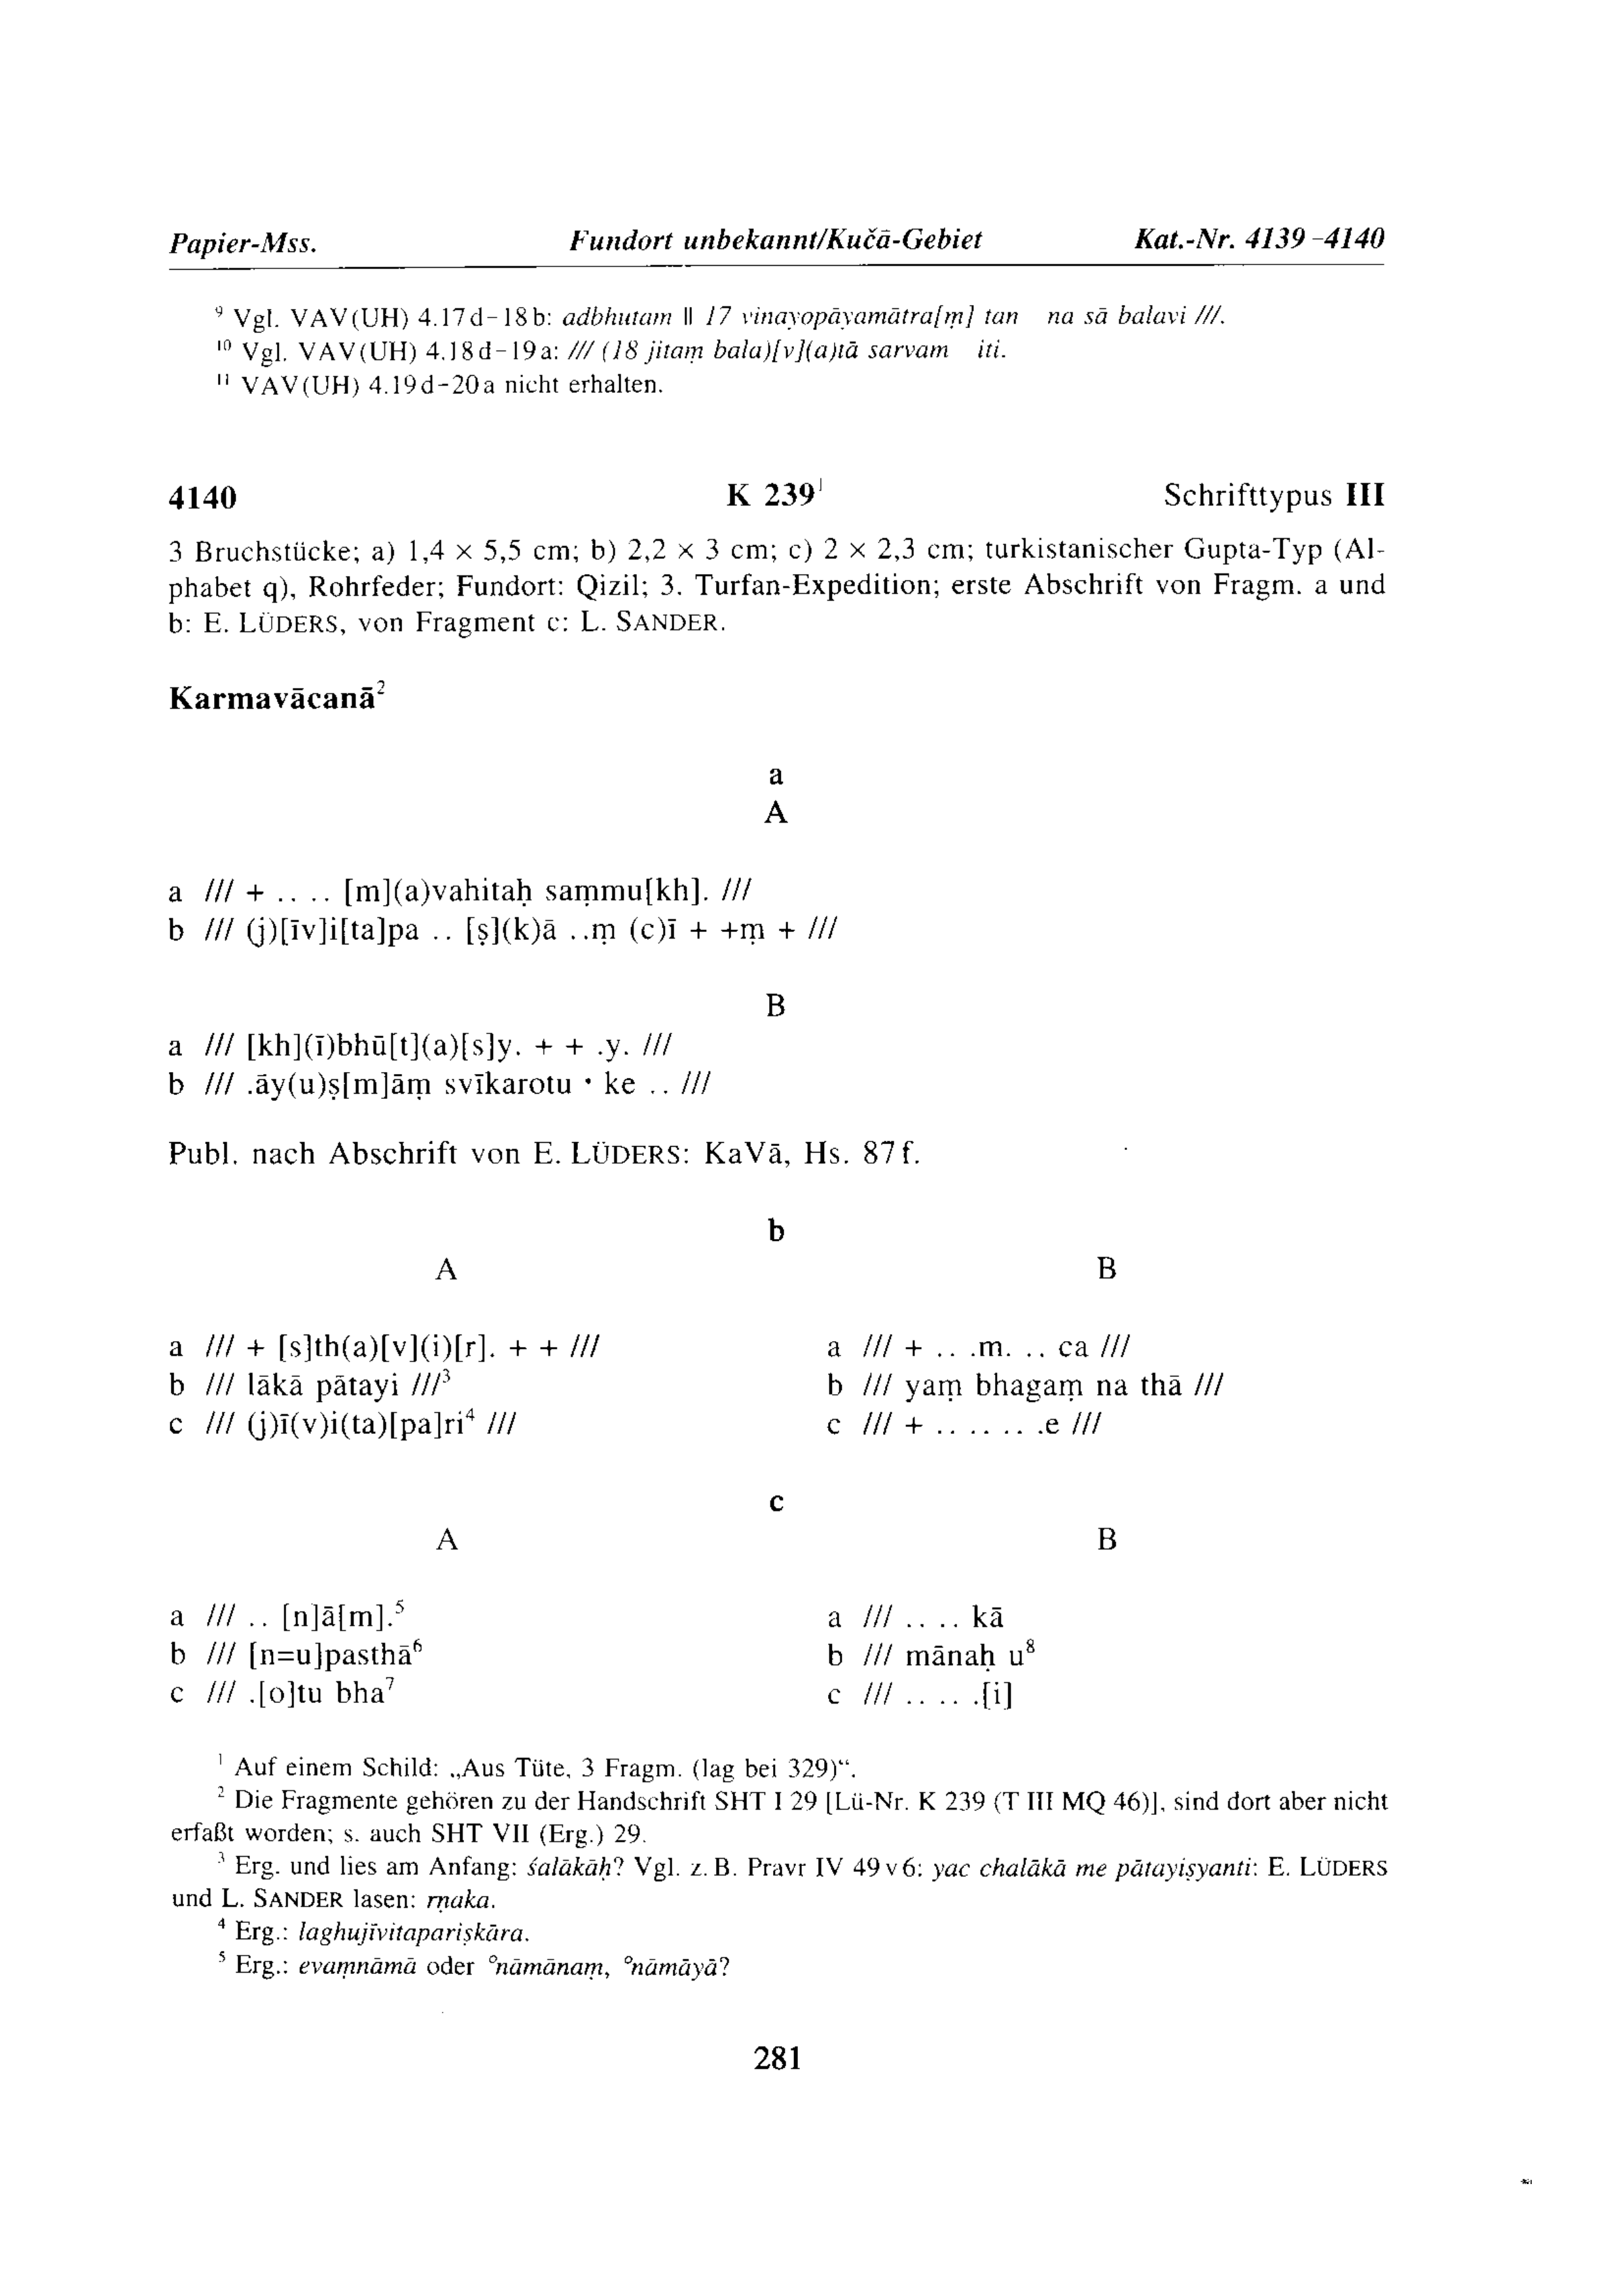 Papier-Mss. Fundort unbekannt/Kučā-Gebiet Kat.-Nr. 4139–4140
⁹ Vgl. VAV(UH) 4.17d–18b: adbhutam ǁ 17 vinayopāyamātra[ṃ] tan na sā balavi ///.
¹⁰ Vgl. VAV(UH) 4.18d–19a: /// (18 jitaṃ bala)[v](a)tā sarvam iti.
¹¹ VAV(UH) 4.19d–20a nicht erhalten.
4140 K 239¹ Schrifttypus III
3 Bruchstücke; a) 1,4 × 5,5 cm; b) 2,2 × 3 cm; c) 2 × 2,3 cm; turkistanischer Gupta-Typ (Al-
phabet q), Rohrfeder; Fundort: Qizil; 3. Turfan-Expedition; erste Abschrift von Fragm. a und
b: E. LÜDERS, von Fragment c: L. SANDER.
Karmavācanā²
a
A
a /// + .. .. [m](a)vahitaḥ saṃmu[kh]. ///
b /// (j)[īv]i[ta]pa .. [ṣ](k)ā ..ṃ (c)ī + +ṃ + ///
B
a /// [kh](ī)bhū[t](a)[s]y. + + .y. ///
b /// .āy(u)ṣ[m]āṃ svīkarotu • ke .. ///
Publ. nach Abschrift von E. LÜDERS: KaVā, Hs. 87f.
b
A B
a /// + [s]th(a)[v](i)[r]. + + /// a /// + .. .m. .. ca ///
b /// lākā pātayi ///³ b /// yaṃ bhagaṃ na thā ///
c /// (j)ī(v)i(ta)[pa]ri⁴ /// c /// + .. .. .. .e ///
c
A B
a /// .. [n]ā[m].⁵ a /// .. .. kā
b /// [n=u]pasthā⁶ b /// mānaḥ u⁸
c /// .[o]tu bha⁷ c /// .. .. .[i]
¹ Auf einem Schild: „Aus Tüte, 3 Fragm. (lag bei 329)“.
² Die Fragmente gehören zu der Handschrift SHT I 29 [Lü-Nr. K 239 (T III MQ 46)], sind dort aber nicht
erfaßt worden; s. auch SHT VII (Erg.) 29.
³ Erg. und lies am Anfang: śalākāḥ? Vgl. z. B. Pravr IV 49 v 6: yac chalākā me pātayiṣyanti: E. LÜDERS
und L. SANDER lasen: ṃaka.
⁴ Erg.: laghujīvitapariṣkāra.
⁵ Erg.: evaṃnāmā oder °nāmānaṃ, °nāmāyā?
281